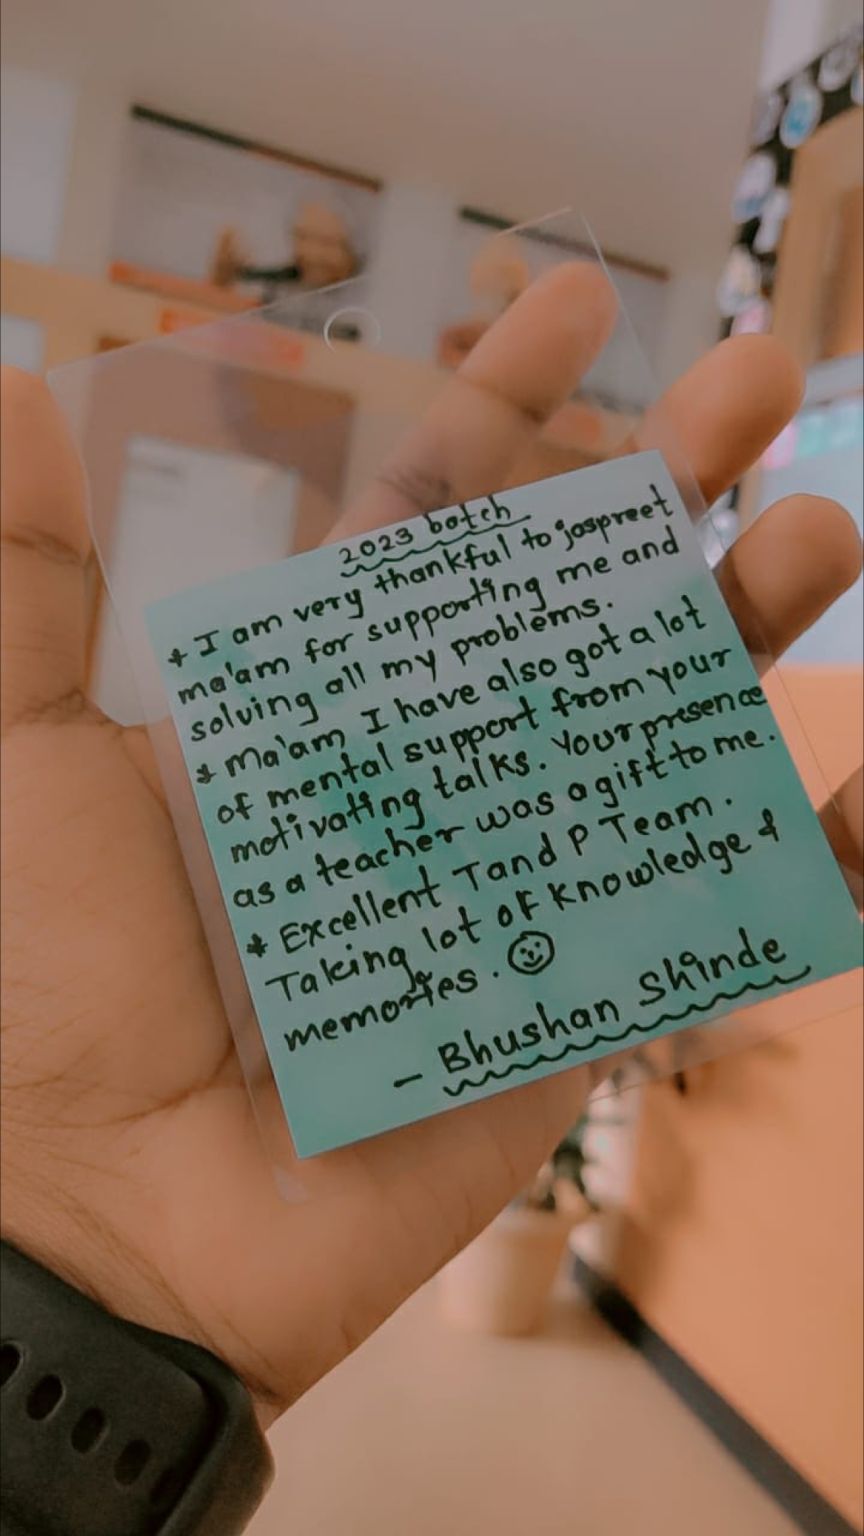 2023 batch
* I am very thankful to jaspreet
ma'am for supporting me and
solving all my problems.
* Ma'am I have also got a lot
of mental support from your
motivating talks. Your presence
as a teacher was a gift to me.
* Excellent T and P Team.
Taking lot of knowledge &
memories. ☺
- Bhushan Shinde